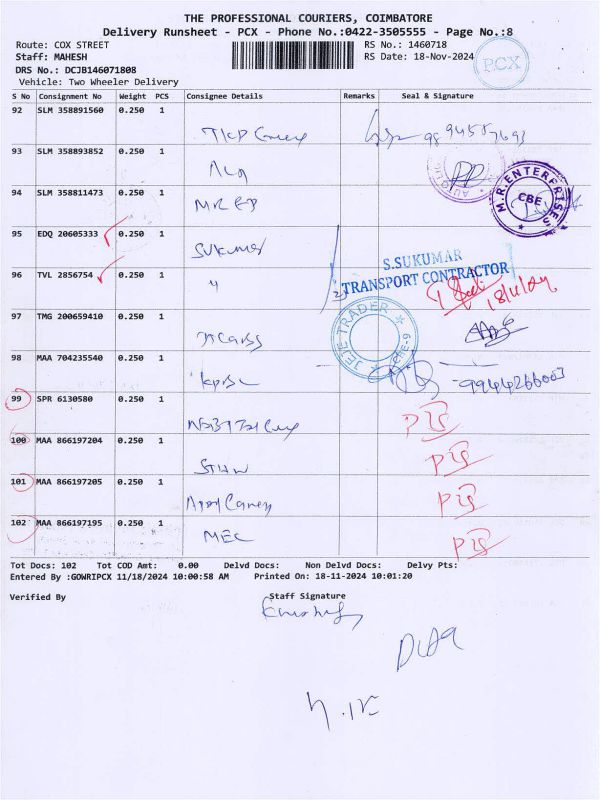 THE PROFESSIONAL COURIERS, COIMBATORE
Delivery Runsheet - PCX - Phone No.:0422-3505555 - Page No.:8
Route: COX STREET
RS No.: 1460718
Staff: MAHESH
RS Date: 18-Nov-2024
PCX
DRS No.: DCJB146071808
Vehicle: Two Wheeler Delivery
S No Consignment No Weight PCS Consignee Details Remarks Seal & Signature
92 SLM 358891560 0.250 1
93 SLM 358893852 0.250 1
94 SLM 358811473 0.250 1
M.R.ENTERPRISES
CBE
95 EDQ 20605333 0.250 1
SUKUMAR
96 TVL 2856754 0.250 1
S.SUKUMAR
TRANSPORT CONTRACTOR
18/11/24
97 TMG 200659410 0.250 1
JEJE TRADER
CBE-9
98 MAA 704235540 0.250 1
99 SPR 6130580 0.250 1
100 MAA 866197204 0.250 1
101 MAA 866197205 0.250 1
102 MAA 866197195 0.250 1
MEC
Tot Docs: 102 Tot COD Amt: 0.00 Delvd Docs: Non Delvd Docs: Delvy Pts:
Entered By :GOWRIPCX 11/18/2024 10:00:58 AM Printed On: 18-11-2024 10:01:20
Verified By Staff Signature